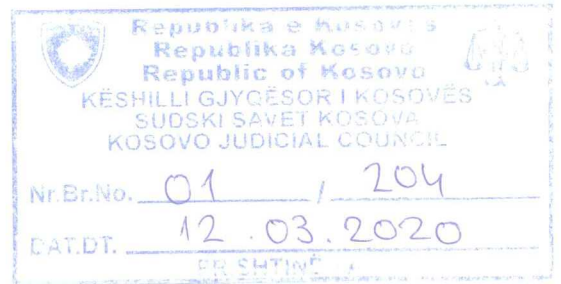 Republika e Kosovës
Republika Kosova
Republic of Kosovo
KËSHILLI GJYQËSOR I KOSOVËS
SUDSKI SAVET KOSOVA
KOSOVO JUDICIAL COUNCIL
Nr.Br.No. 01 / 204
DAT.DT. 12.03.2020
PRISHTINË